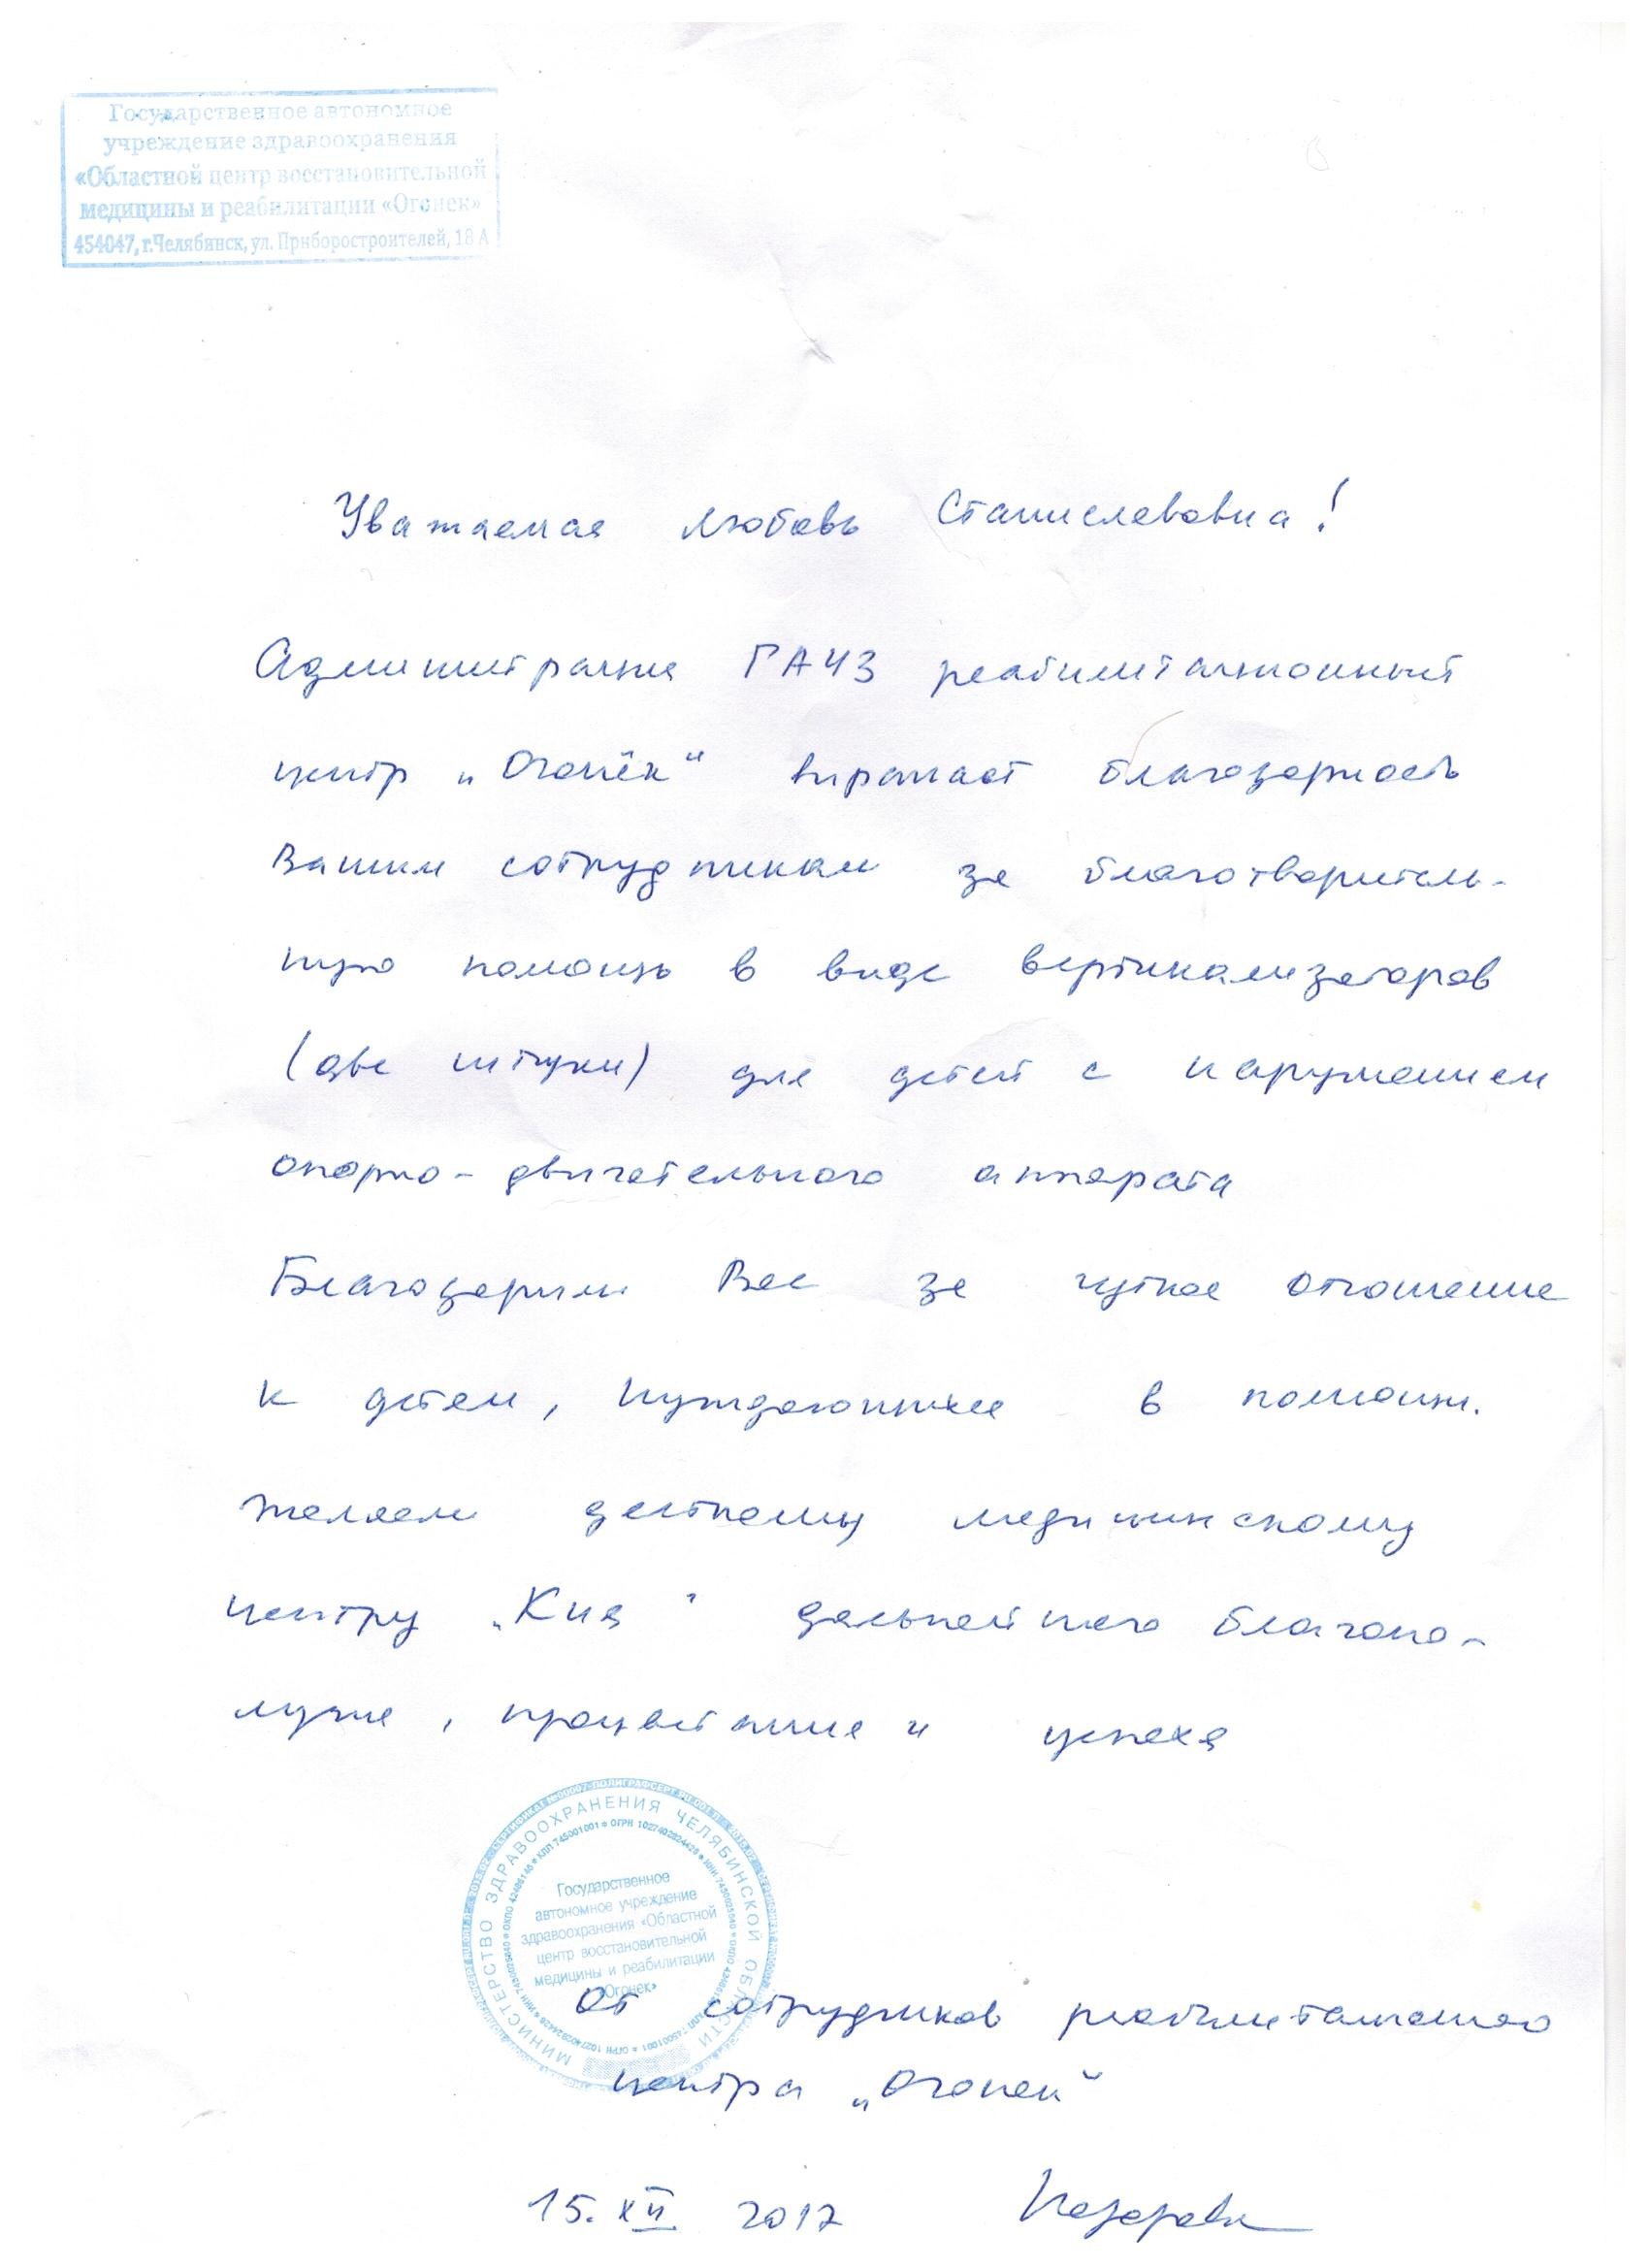 Государственное автономное
учреждение здравоохранения
«Областной центр восстановительной
медицины и реабилитации «Огонек»
454047, г.Челябинск, ул. Приборостроителей, 18 А
Уважаемая Любовь Станиславовна!
Администрация ГАУЗ реабилитационный
центр „Огонёк“ выражает благодарность
Вашим сотрудникам за благотворитель-
ную помощь в виде вертикализаторов
(две штуки) для детей с нарушением
опорно-двигательного аппарата
Благодарим Вас за чуткое отношение
к детям, нуждающимся в помощи.
Желаем детскому медицинскому
центру „Кия“ дальнейшего благопо-
лучия, процветания и успеха
МИНИСТЕРСТВО ЗДРАВООХРАНЕНИЯ ЧЕЛЯБИНСКОЙ ОБЛАСТИ
Государственное
автономное учреждение
здравоохранения «Областной
центр восстановительной
медицины и реабилитации
«Огонек»
От сотрудников реабилитационного
центра „Огонек“
15. XII 2017